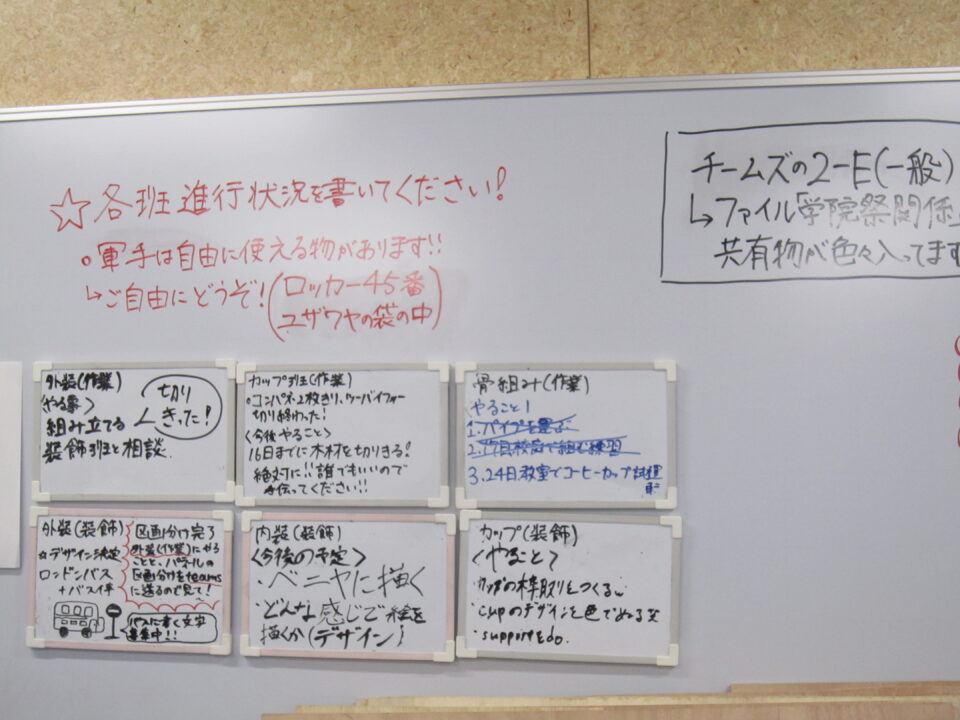 ☆各班進行状況を書いてください!
。軍手は自由に使える物があります!!
↳ご自由にどうぞ!(ロッカー45番
ユザワヤの袋の中)
チームズの2-E(一般)
↳ファイル「学院祭関係」
共有物が色々入ってます
外装(作業)
<やる事>
組み立てる
装飾班と相談.
切り
きった!
カップ班(作業)
。コンパネ2枚きり、ツーバイフォー
切り終わった!
<今後やること>
16日までに木材を切りきる!
絶対に!!誰でもいいので
手伝ってください!!
骨組み(作業)
やること!
1.パイプを運ぶ
2.17日校庭で組む練習
3.24日教室でコーヒーカップ試運
転
外装(装飾)
☆デザイン決定
ロンドンバス
+バス停
区画分け完了
外装(作業)にやる
ことと、パネルの
区画分けをteams
に送るので見て!
バスに書く文字
募集中!!
内装(装飾)
<今後の予定>
・ベニヤに描く
・どんな感じで絵を
描くか(デザイン)
カップ(装飾)
<やること>
・カップの枠取りをつくる
・cupのデザインと色でぬる
・supportをdo.